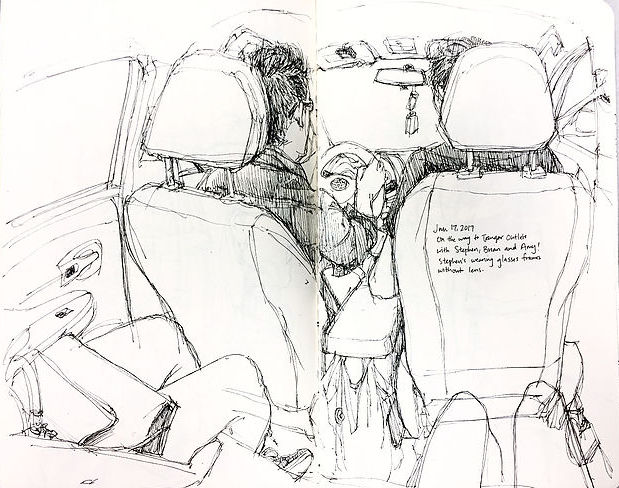 Jan 17, 2017
On the way to Tanger Outlets
with Stephen, Brian and Amy!
Stephen's wearing glasses frames
without lens.